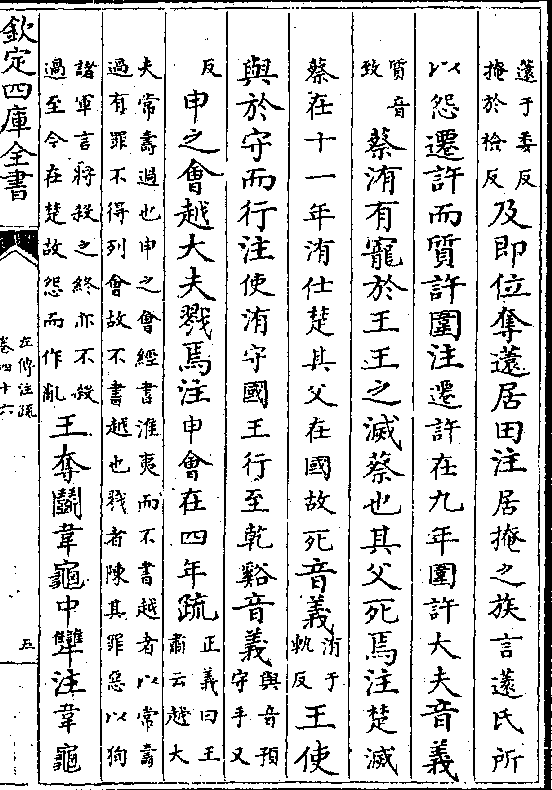 薳于委反
掩於檢反
及即位奪薳居田注居掩之族言薳氏所
以怨遷許而質許圍注遷許在九年圍許大夫音義
質音
致
蔡洧有寵於王王之滅蔡也其父死焉注楚滅
蔡在十一年洧仕楚其父在國故死音義
洧于
軌反
王使
與於守而行注使洧守國王行至乾谿音義
與音預
守手又
反
申之會越大夫戮焉注申會在四年疏
正義曰王
肅云越大
夫常壽過也申之會經書淮夷而不書越者以常壽
過有罪不得列會故不書越也戮者陳其罪惡以徇
諸軍言將殺之終亦不殺
過至今在楚故怨而作亂
王奪鬭韋龜中犫注韋龜
欽定四庫全書
左傳注疏
卷四十六
五